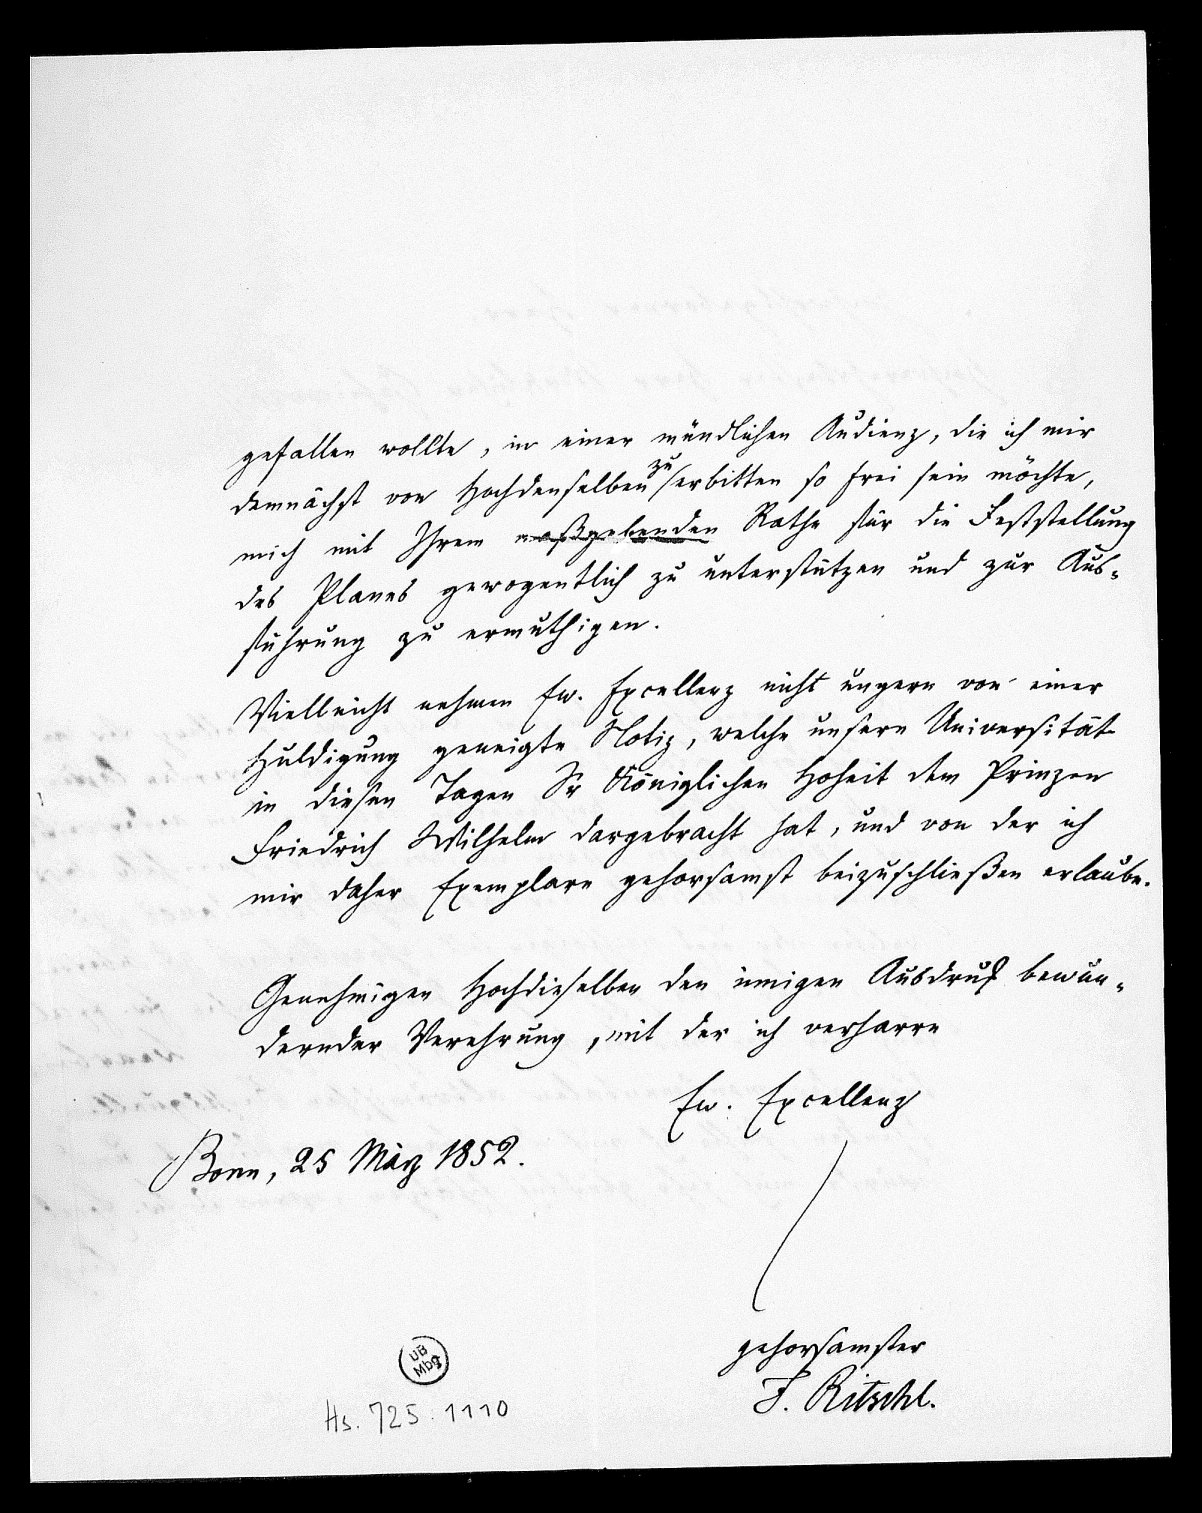 gefallen wollte, in einer mündlichen Audienz, die ich mir
demnächst von Hochdenselben zu erbitten so frei sein möchte,
mich mit Ihrem maßgebenden Rathe für die Feststellung
des Planes gewogentlich zu unterstützen und zur Aus-
führung zu ermuthigen.
Vielleicht nehmen Ew. Excellenz nicht ungern von einer
Huldigung geneigte Notiz, welche unsere Universität
in diesen Tagen Sr Königlichen Hoheit dem Prinzen
Friedrich Wilhelm dargebracht hat, und von der ich
mir daher Exemplare gehorsamst beizuschließen erlaube.
Genehmigen Hochdieselben den innigen Ausdruck bewun-
dernder Verehrung, mit der ich verharre
Ew. Excellenz
Bonn, 25 März 1852.
gehorsamster
F. Ritschl.
UB
Mbg
Hs. 725:1110